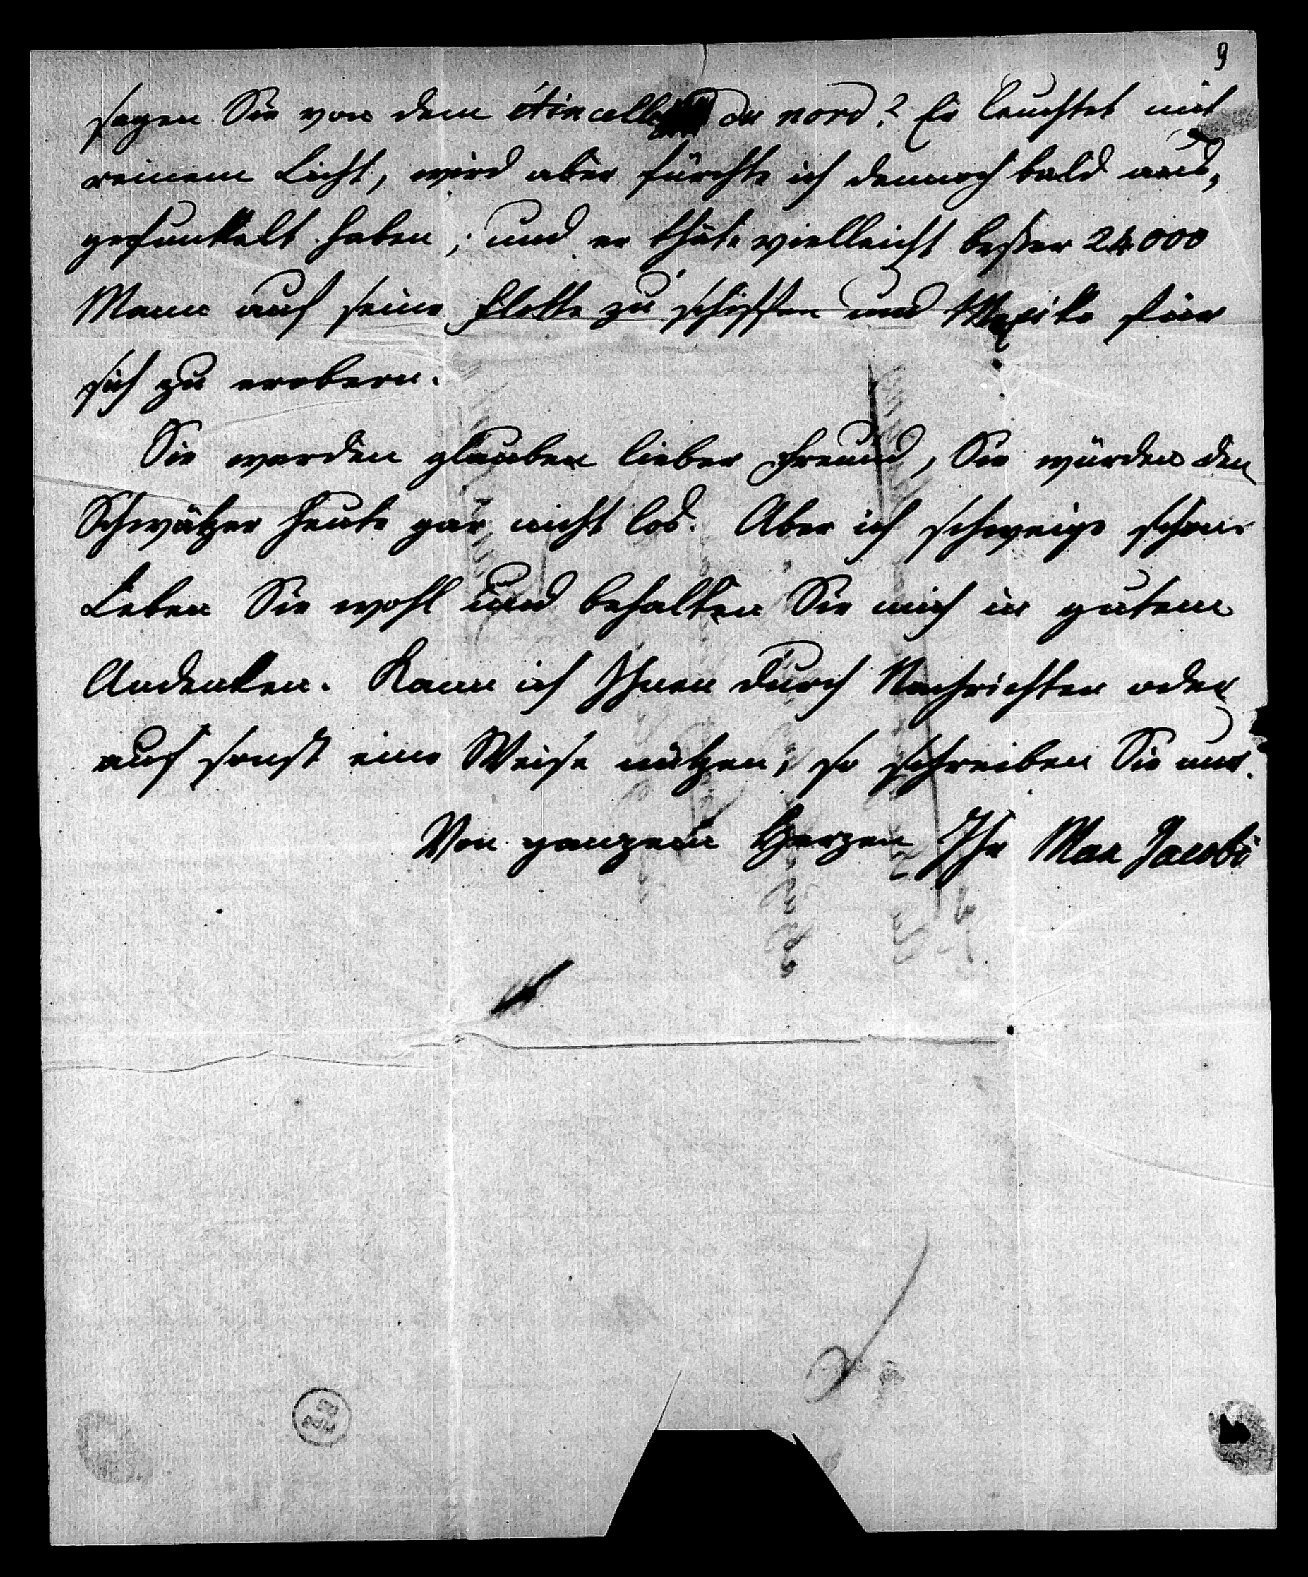 9
sagen Sie von dem étincelle du nord? Er leuchtet mit
reinem Licht, wird aber fürchte ich dennoch bald aus,
gefunkelt haben, und er thäte vielleicht beßer 24000
Mann auf seine Flotte zu schiffen und Mexiko für
sich zu erobern.
Sie werden glauben lieber Freund, Sie würden den
Schwätzer heute gar nicht los. Aber ich schweige schon.
Leben Sie wohl und behalten Sie mich in gutem
Andenken. Kann ich Ihnen durch Nachrichten oder
auf sonst eine Weise nützen, so schreiben Sie nur.
Von ganzem Herzen Ihr Max Jacobi